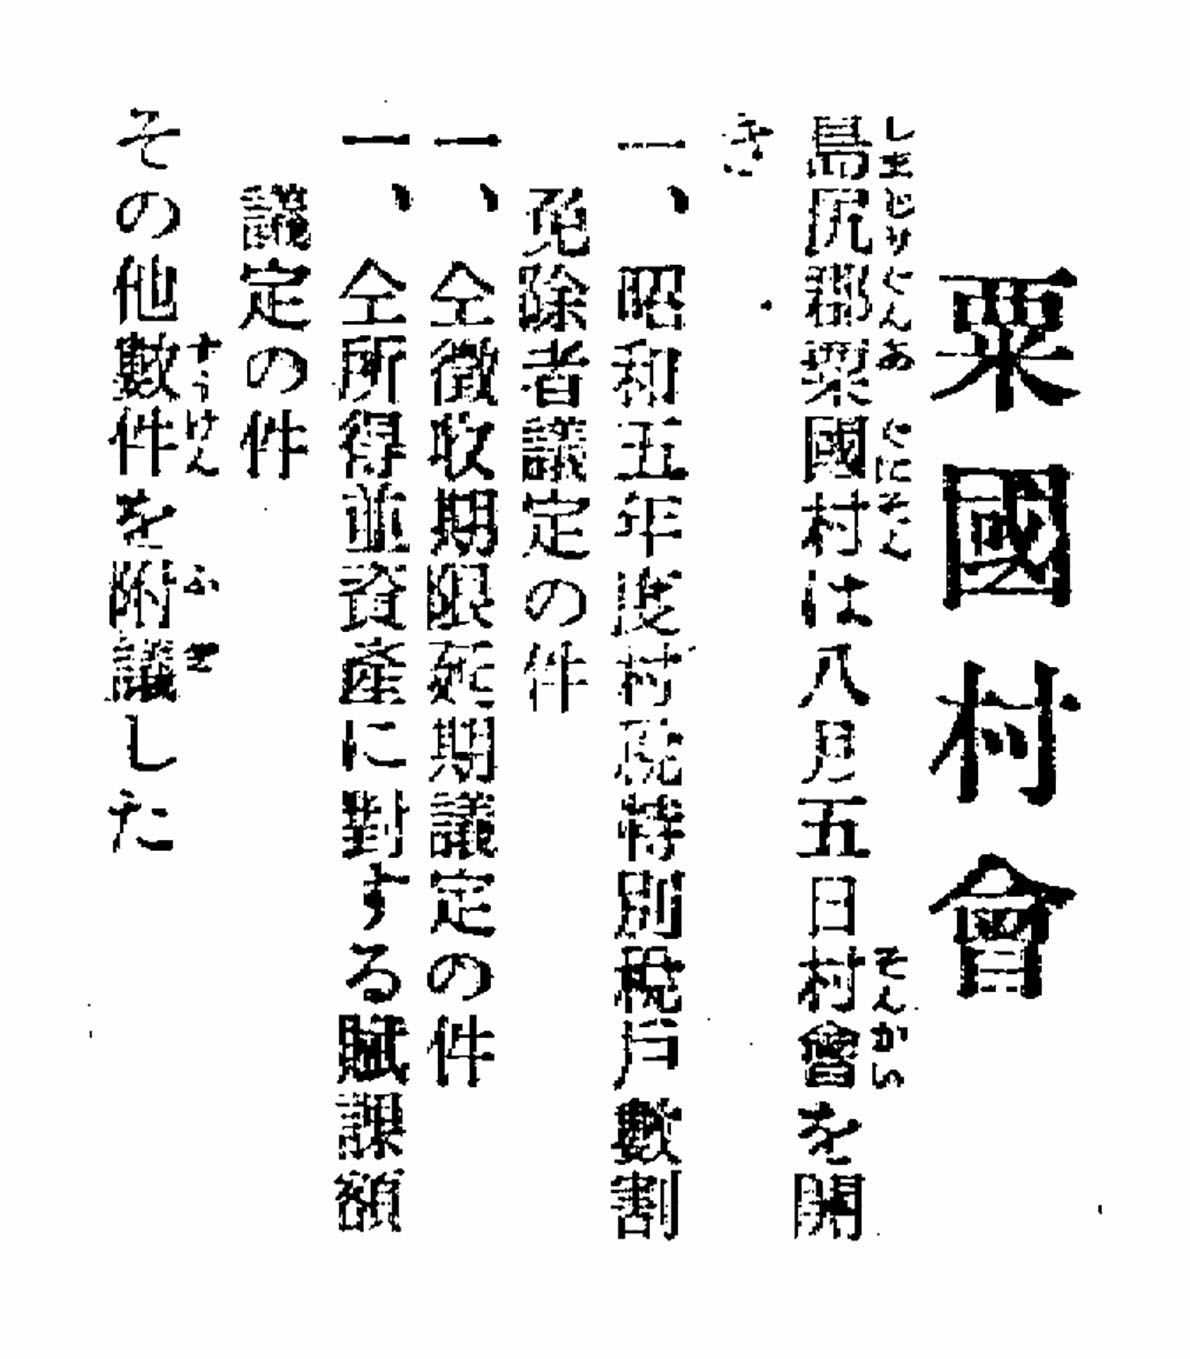 粟國村會
島尻郡粟國村は八月五日村會を開
き
一、昭和五年度村稅特別稅戶數割
免除者議定の件
一、仝徵收期限延期議定の件
一、仝所得並資產に對する賦課額
議定の件
その他數件を附議した